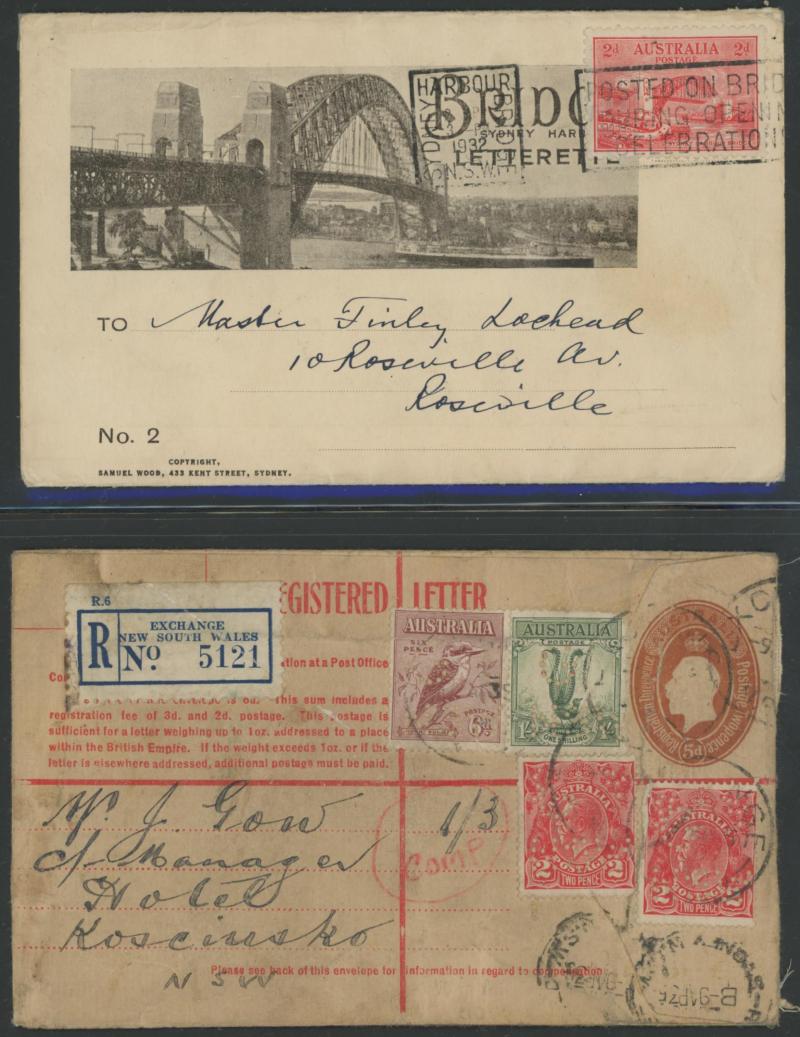 AUSTRALIA
2d POSTAGE 2d
HARBOUR
BRIDGE
SYDNEY
BRIDGE
1932
N.S.W.
SYDNEY HARB
LETTERETTE
POSTED ON BRID
DURING OPENIN
CELEBRATION
TO Master Finley Lochead
10 Roseville Av.
Roseville
No. 2
COPYRIGHT,
SAMUEL WOOD, 433 KENT STREET, SYDNEY.
EGISTERED LETTER
R.6
EXCHANGE
NEW SOUTH WALES
R No 5121
ation at a Post Office
Co
is 6d. This sum includes a
registration fee of 3d. and 2d. postage. This postage is
sufficient for a letter weighing up to 1oz. addressed to a place
within the British Empire. If the weight exceeds 1oz. or if the
letter is elsewhere addressed, additional postage must be paid.
AUSTRALIA
SIX
PENCE
POSTAGE
6d
AUSTRALIA
POSTAGE
1/- ONE SHILLING
Postage Twopence
5d
Mr J. Gow
c/- Manager
Hotel
Kosciusko
N S W
1/3
COMP
AUSTRALIA
2 POSTAGE 2
TWO PENCE
AUSTRALIA
2 POSTAGE 2
TWO PENCE
Please see back of this envelope for information in regard to compensation
SYDNEY
B-9AP36